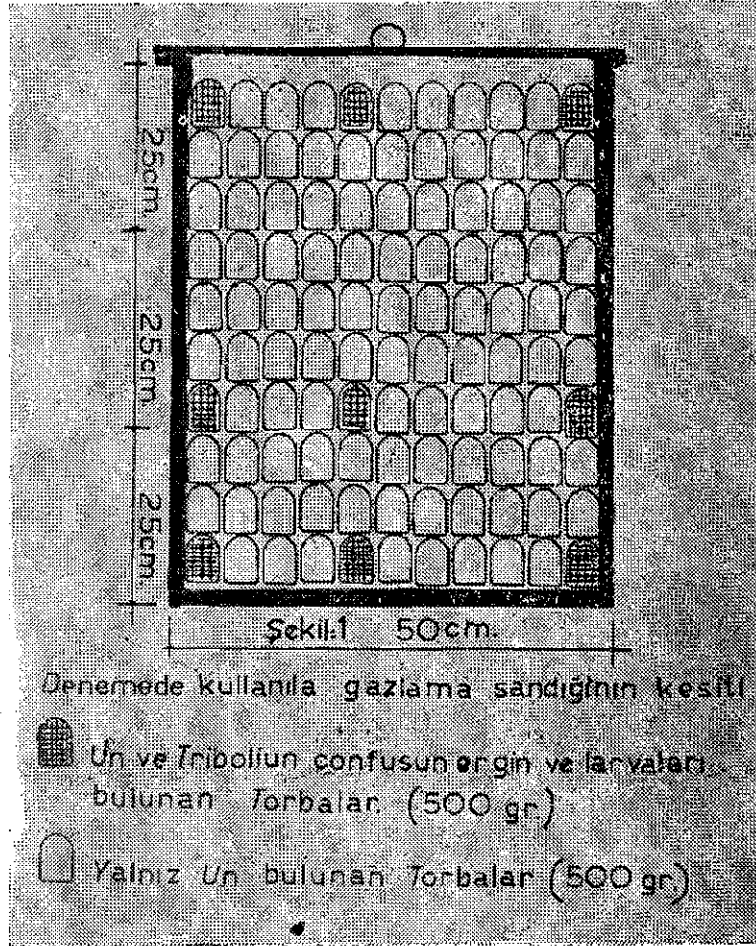 25cm
25cm
25cm
Şekil:1 50cm.
Denemede kullanıla gazlama sandığının kesiti
Un ve Triboliun confusun ergin ve larvaları
bulunan Torbalar. (500 gr.)
Yalnız Un bulunan Torbalar (500 gr.)